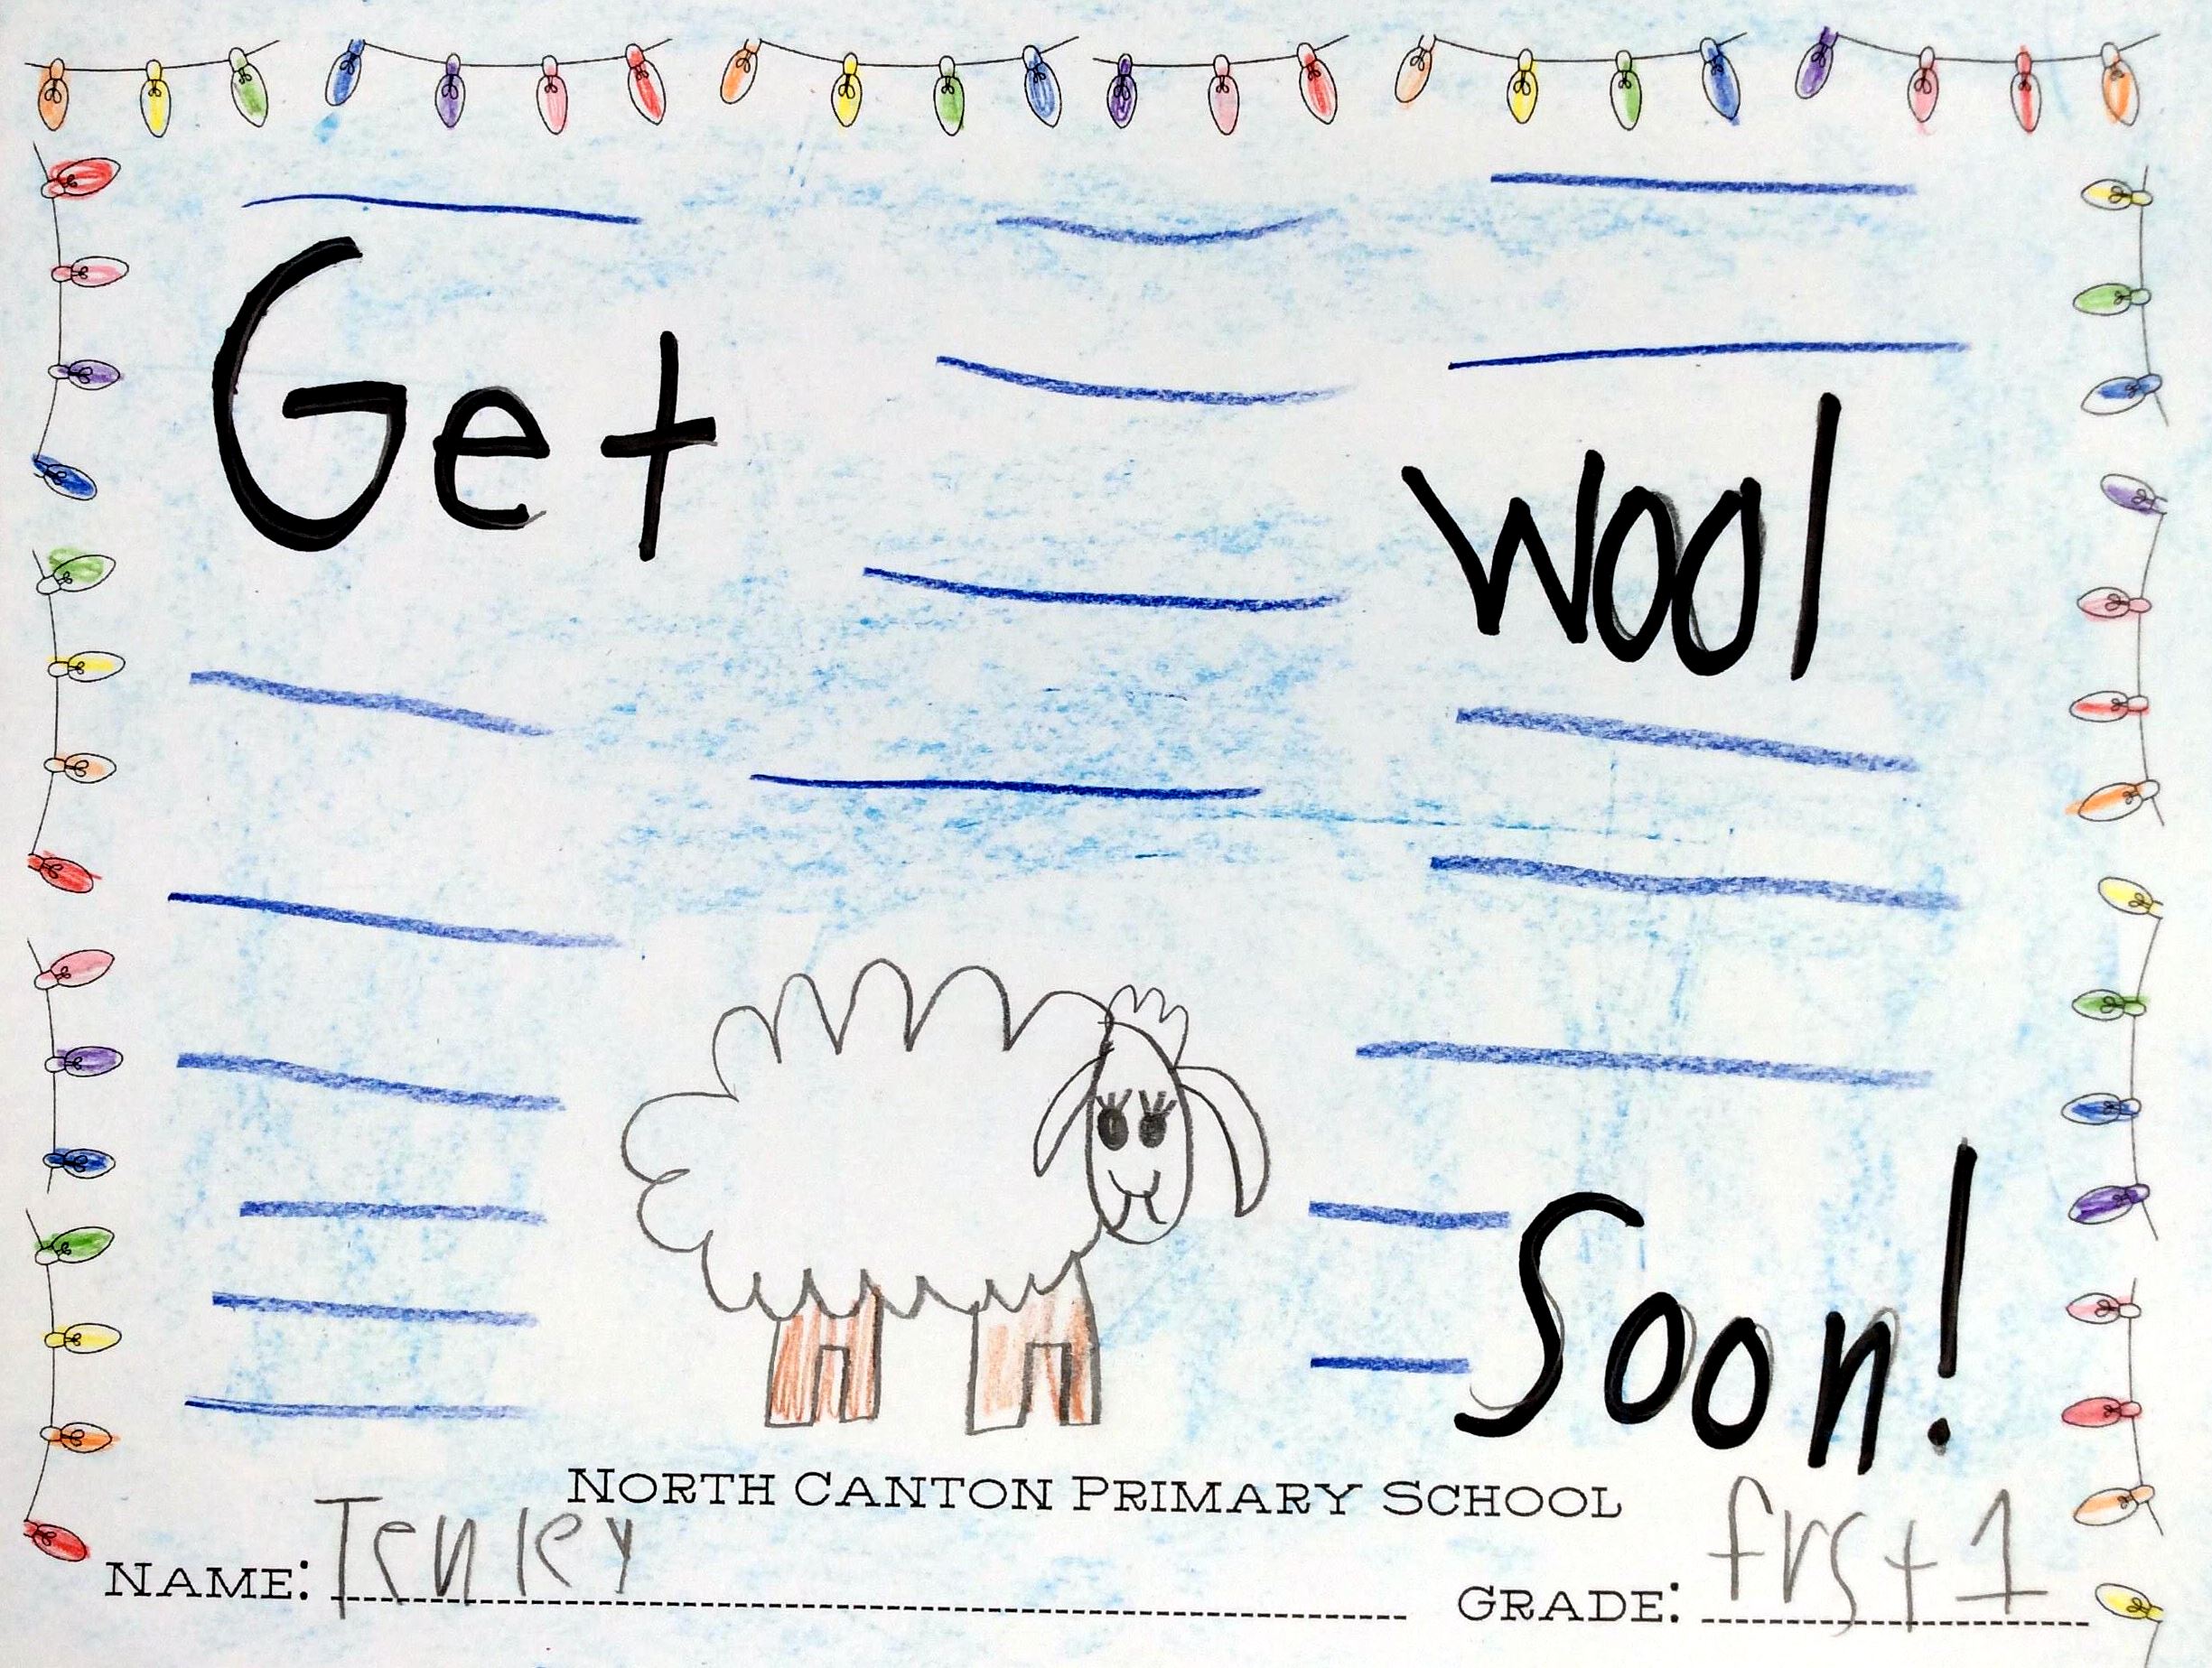 Get
wool
Soon!
NORTH CANTON PRIMARY SCHOOL
NAME: Tenley
GRADE: frst 1